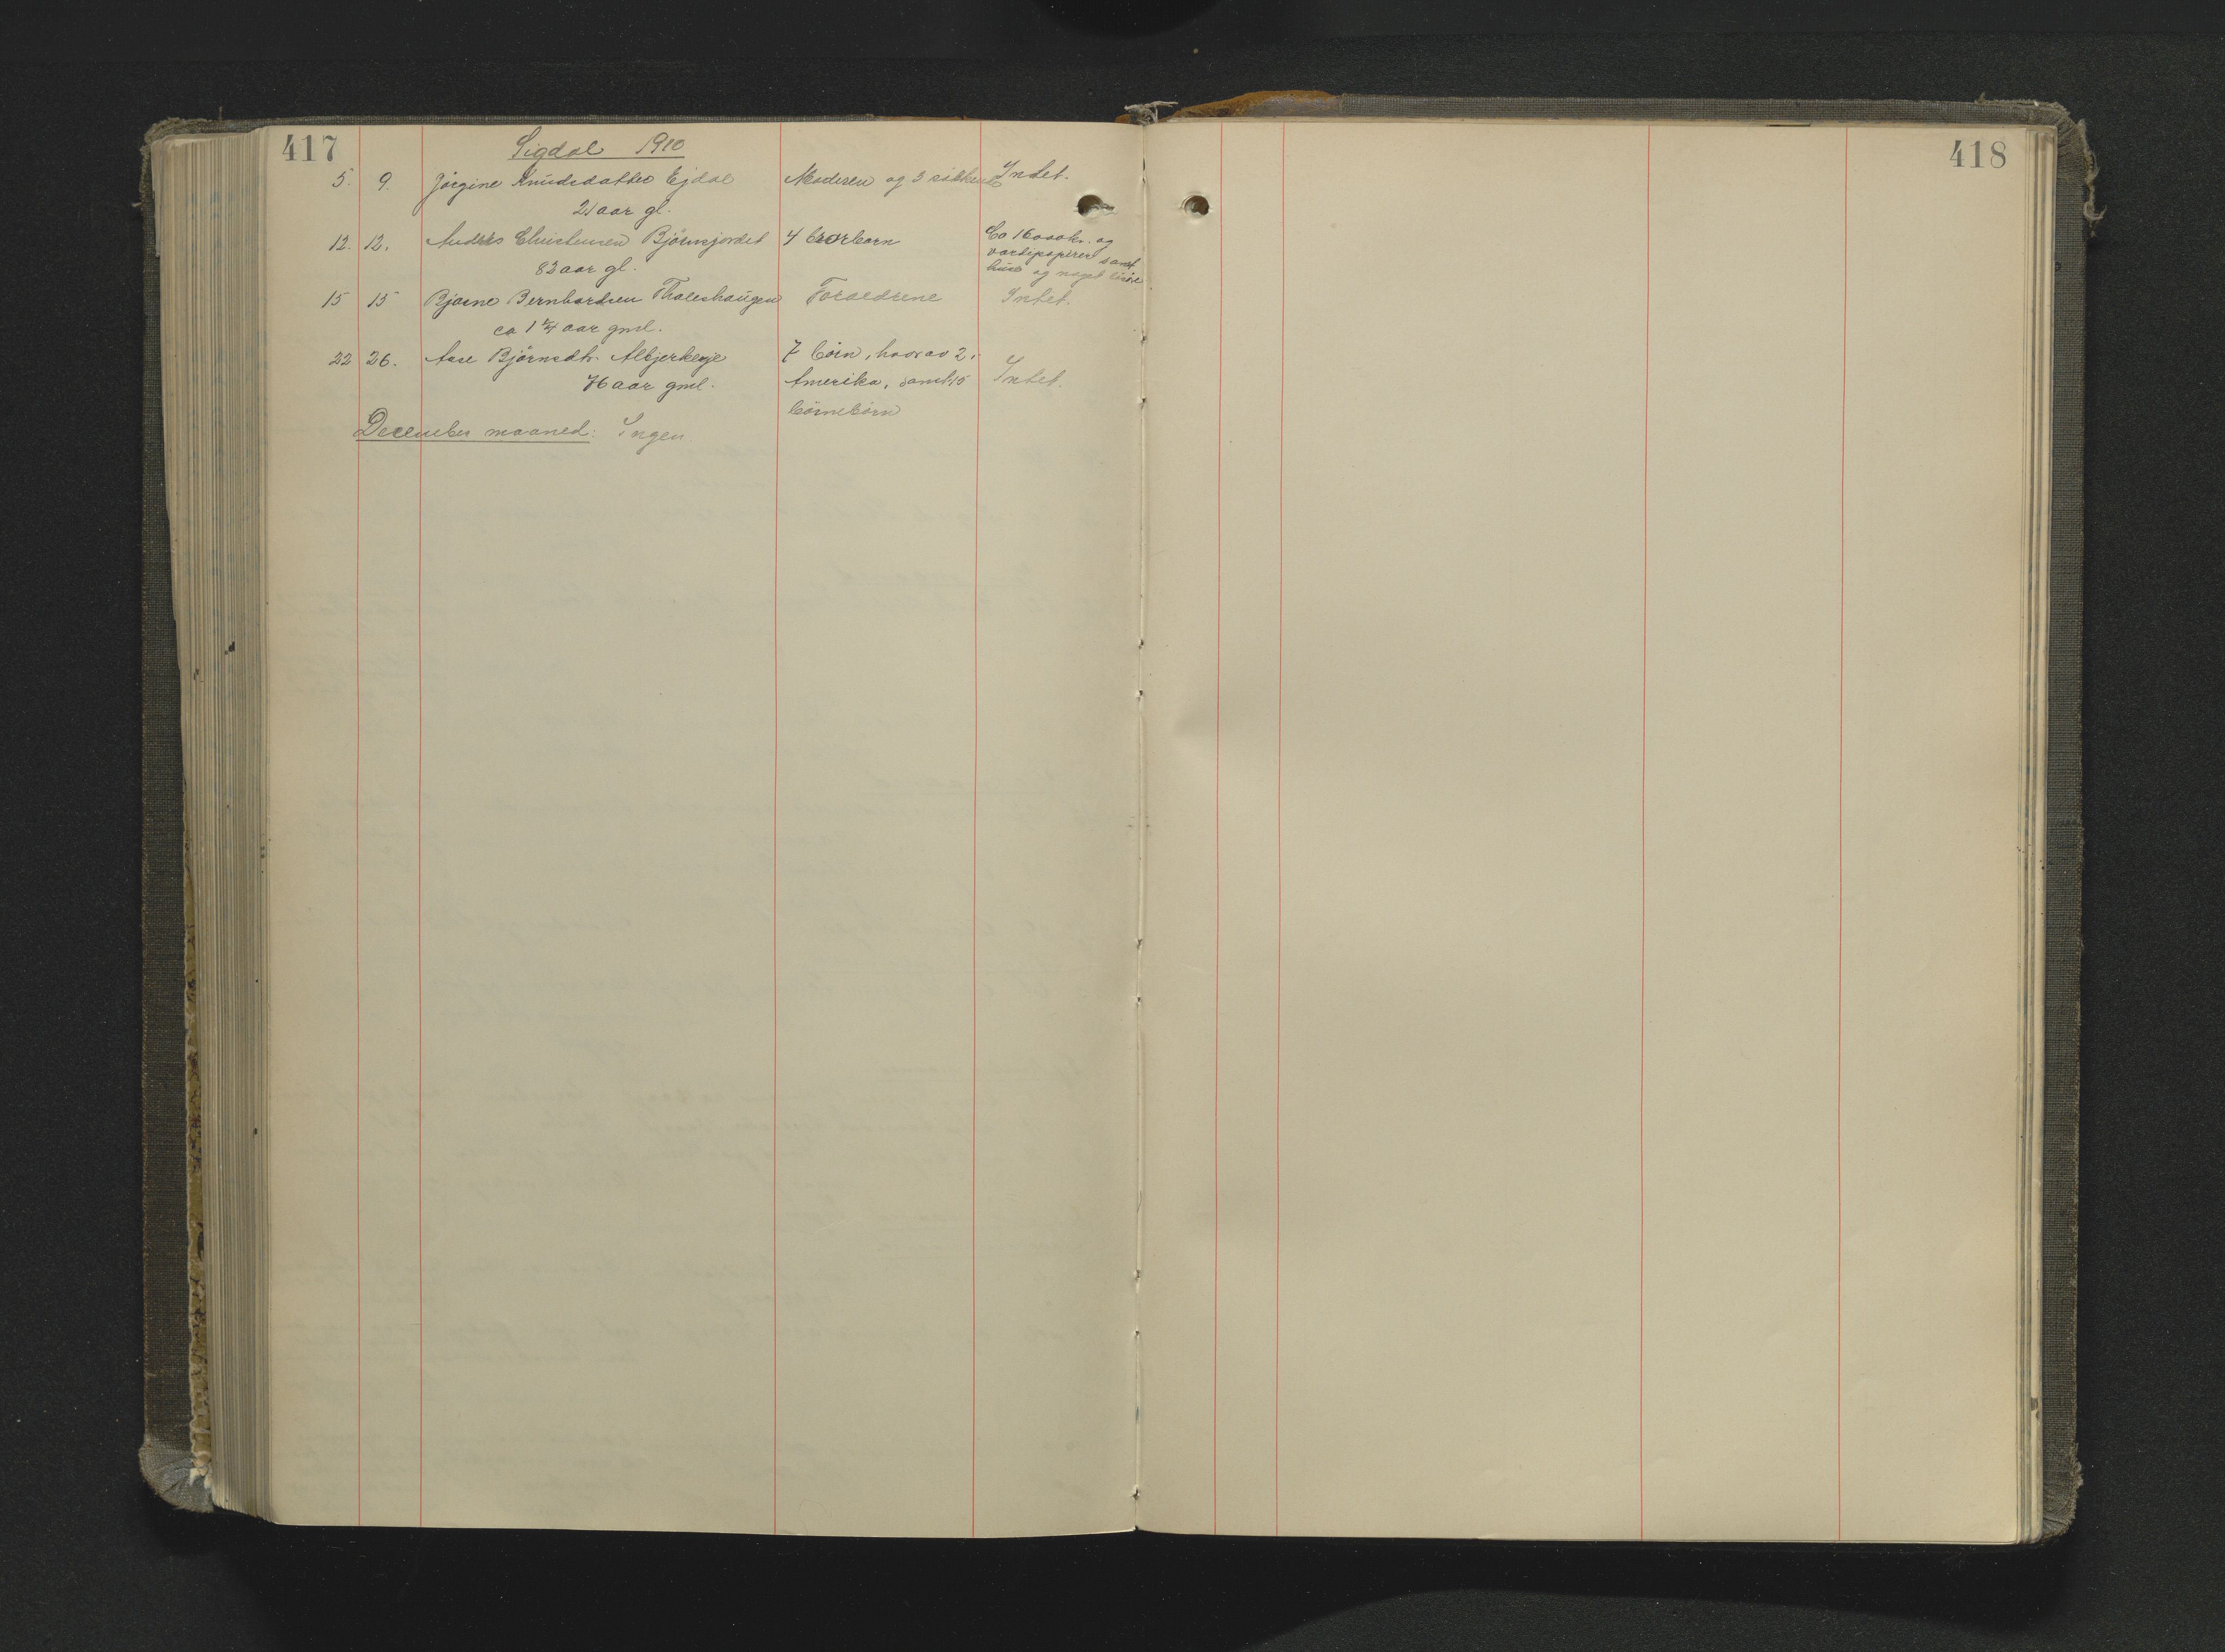 417
Sigdal 1910
5. 9. Jörgine Knudsdatter Ejdal Moderen og 3 söskende Intet.
21 aar gl.
12. 12. Anders Christensen Björnsjordet 4 brorbarn Ca 16000 kr. og
værdipapirer samt
83 aar gl. hus og noget
15 15 Bjarne Bernhardsen Thaleshaugen Foraeldrene Intet.
ca 1 3/4 aar gml.
22 26. Aase Björnsdtr. Albjerkeeje 7 börn, hvorav 2 i
76 aar gml. Amerika, samt 15 Intet.
börnebörn
December maaned: Ingen.
418